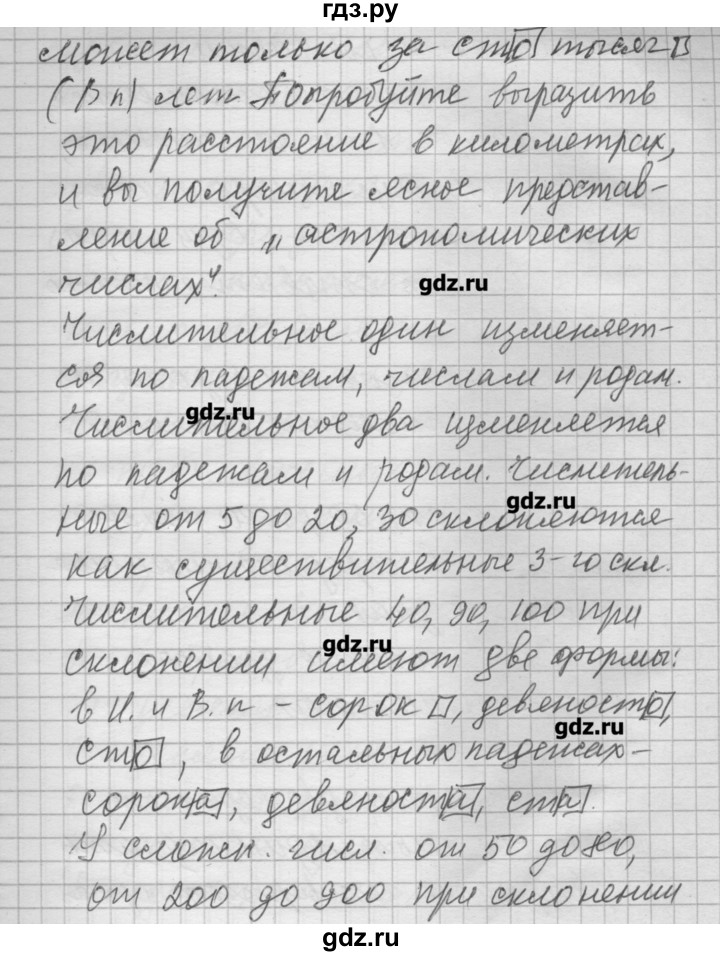 гдз.ру
может только за сто тысяч
(В п) лет. Попробуйте выразить
это расстояние в километрах,
и вы получите ясное представ-
ление об „астрономических
числах".
gdz.ru
Числительное один изменяет-
ся по падежам, числам и родам.
gdz.ru
Числительное два изменяется
по падежам и родам. Числитель-
gdz.ru
ные от 5 до 20, 30 склоняются
как существительные 3-го скл.
Числительные 40, 90, 100 при
gdz.ru
склонении имеют две формы:
в И. и В. п - сорок, девяносто,
gdz.ru
сто, в остальных падежах-
сорока, девяноста, ста.
У сложн. числ. от 50 до 80,
от 200 до 900 при склонении
gdz.ru